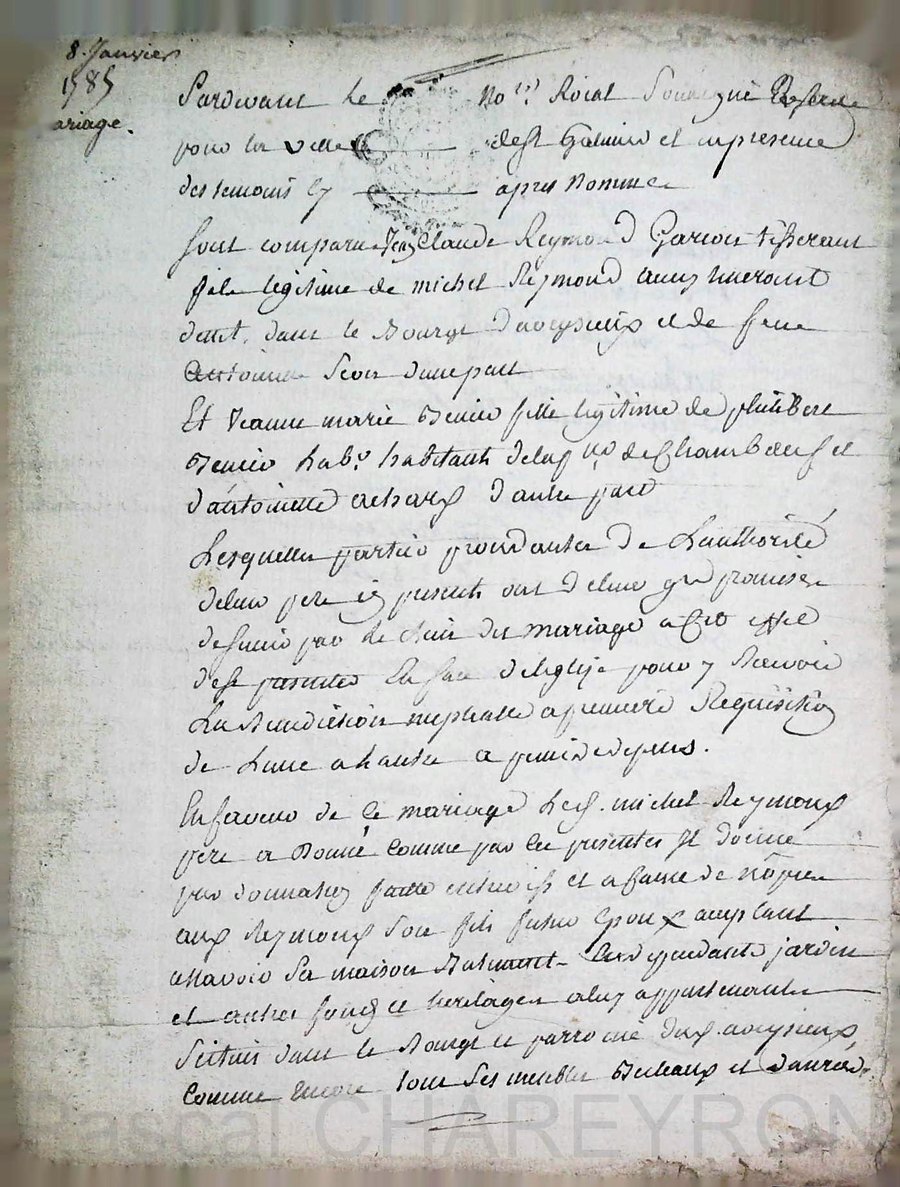 8. Janvier
1785
ariage.
Pardevant le No.re Roial Soussigné Reservé
pour la ville de St Galmier et en presence
des temoins cy apres Nommes
sont comparu Jean Claude Reymond Garson tisserant
fils legitime de michel Reymond aussy tiserant
dans le Bourg d'aveyzieux et de feue
Antoinete d'une part
Et Jeanne marie fille legitime de philibert
hab.t habitants de la p.sse de Chambeuf et
d'antoinette achard d'autre part
Lesquelles parties procedantes de L'authorité
de leur pere icy presents ont de leur gré promises
de s'unir par le lien du mariage a cet effet
de se presenter En face d'Eglise pour y Recevoir
La Benediction nuptialle a premiere Requisition
de L'une a L'autre a peine de depens.
En faveur de ce mariage led. michel Reymond
pere a Donné comme par ces presentes Il donne
par donnation faitte entre vifs et a cause de nopces
aud. Reymond son fils futur epoux acceptant
assavoir sa maison Batiment jardin
et autres fonds et heritages a luy appartenants
Scitués dans le Bourg et parroisse dud. aveyzieux
comme encore tous ses meubles Bestiaux et danrées
Pascal CHAREYRON